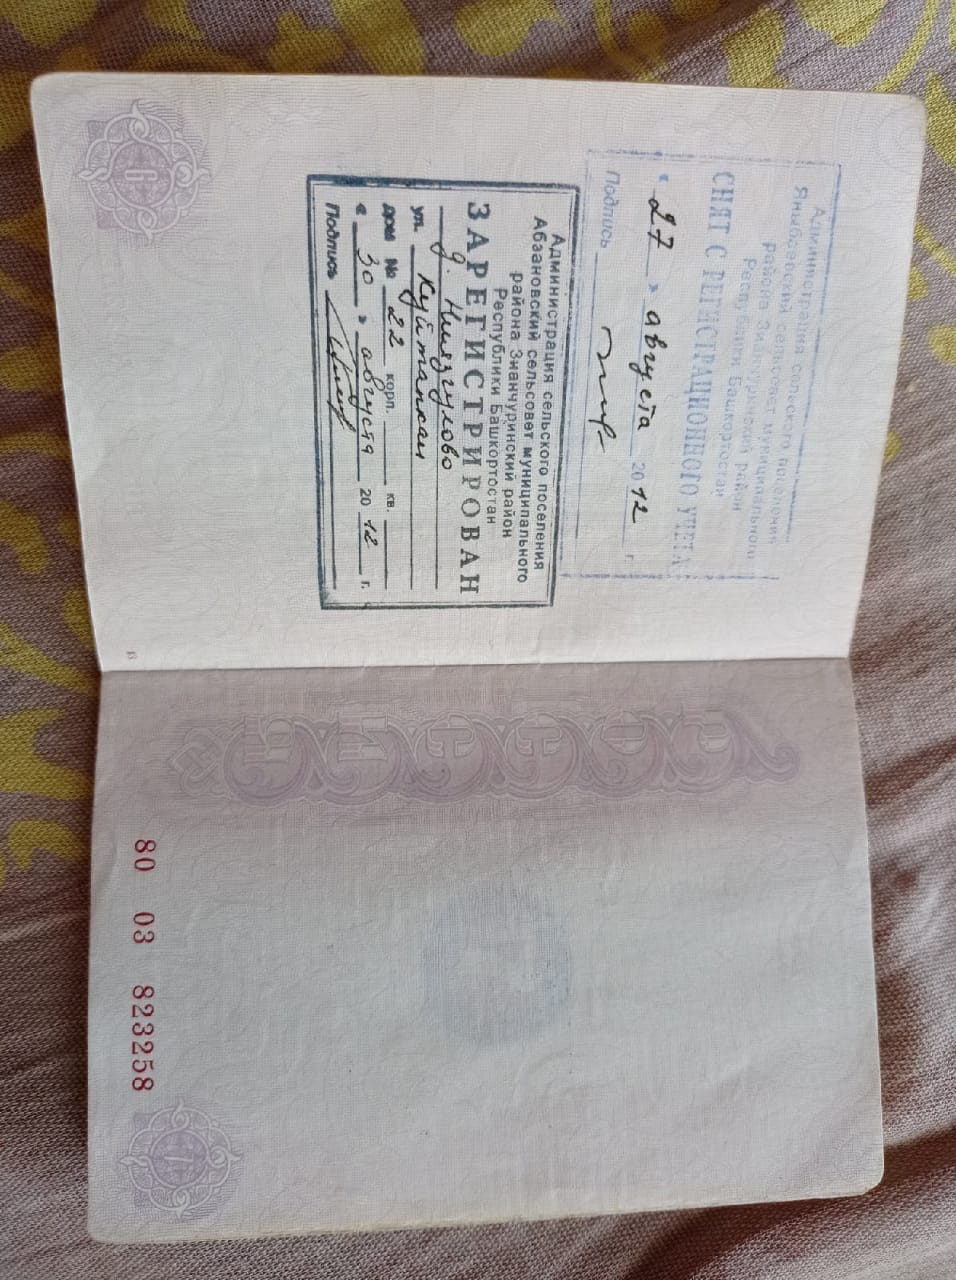 Администрация сельского поселения
Яныбаевский сельсовет муниципального
района Зианчуринский район
Республики Башкортостан
СНЯТ С РЕГИСТРАЦИОННОГО УЧЕТА
« 27 » августа 2012 г.
Подпись
Администрация сельского поселения
Абзановский сельсовет муниципального
района Зианчуринский район
Республики Башкортостан
ЗАРЕГИСТРИРОВАН
д. Ниязгулово
ул. Куйтанкан
дом № 22 корп. кв.
« 30 » августа 2012 г.
Подпись
6
80 03 823258
7